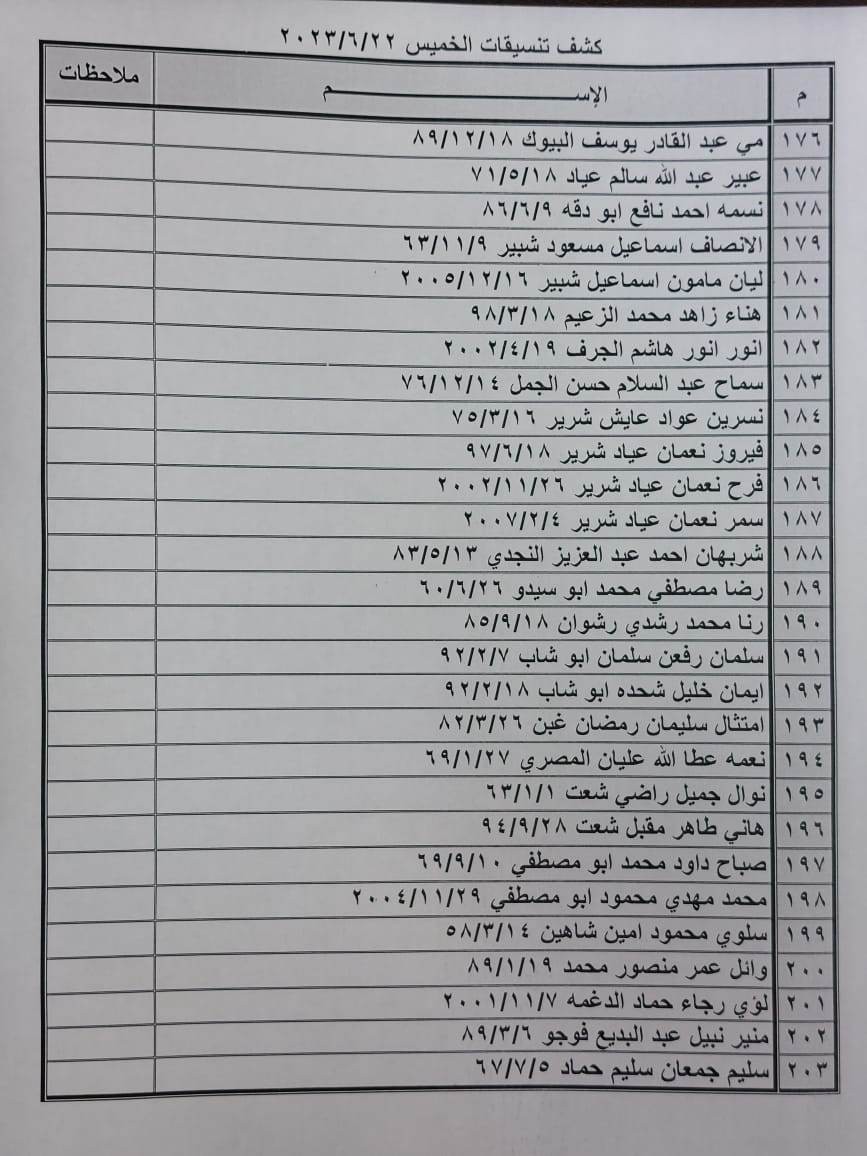 كشف تنسيقات الخميس ٢٠٢٣/٦/٢٢
م الإســـــــــم ملاحظات
١٧٦ مي عبد القادر يوسف البيوك ٨٩/١٢/١٨
١٧٧ عبير عبد الله سالم عياد ٧١/٥/١٨
١٧٨ نسمه احمد نافع ابو دقه ٨٦/٦/٩
١٧٩ الانصاف اسماعيل مسعود شبير ٦٣/١١/٩
١٨٠ ليان مامون اسماعيل شبير ٢٠٠٥/١٢/١٦
١٨١ هناء زاهد محمد الزعيم ٩٨/٣/١٨
١٨٢ انور انور هاشم الجرف ٢٠٠٢/٤/١٩
١٨٣ سماح عبد السلام حسن الجمل ٧٦/١٢/١٤
١٨٤ نسرين عواد عايش شرير ٧٥/٣/١٦
١٨٥ فيروز نعمان عياد شرير ٩٧/٦/١٨
١٨٦ فرح نعمان عياد شرير ٢٠٠٢/١١/٢٦
١٨٧ سمر نعمان عياد شرير ٢٠٠٧/٢/٤
١٨٨ شريهان احمد عبد العزيز النجدي ٨٣/٥/١٣
١٨٩ رضا مصطفي محمد ابو سيدو ٦٠/٦/٢٦
١٩٠ رنا محمد رشدي رشوان ٨٥/٩/١٨
١٩١ سلمان رفعن سلمان ابو شاب ٩٢/٢/٧
١٩٢ ايمان خليل شحده ابو شاب ٩٢/٢/١٨
١٩٣ امتثال سليمان رمضان غبن ٨٢/٣/٢٦
١٩٤ نعمه عطا الله عليان المصري ٦٩/١/٢٧
١٩٥ نوال جميل راضي شعت ٦٣/١/١
١٩٦ هاني طاهر مقبل شعت ٩٤/٩/٢٨
١٩٧ صباح داود محمد ابو مصطفي ٦٩/٩/١٠
١٩٨ محمد مهدي محمود ابو مصطفي ٢٠٠٤/١١/٢٩
١٩٩ سلوي محمود امين شاهين ٥٨/٣/١٤
٢٠٠ وائل عمر منصور محمد ٨٩/١/١٩
٢٠١ لؤي رجاء حماد الدغمه ٢٠٠١/١١/٧
٢٠٢ منير نبيل عبد البديع فوجو ٨٩/٣/٦
٢٠٣ سليم جمعان سليم حماد ٦٧/٧/٥